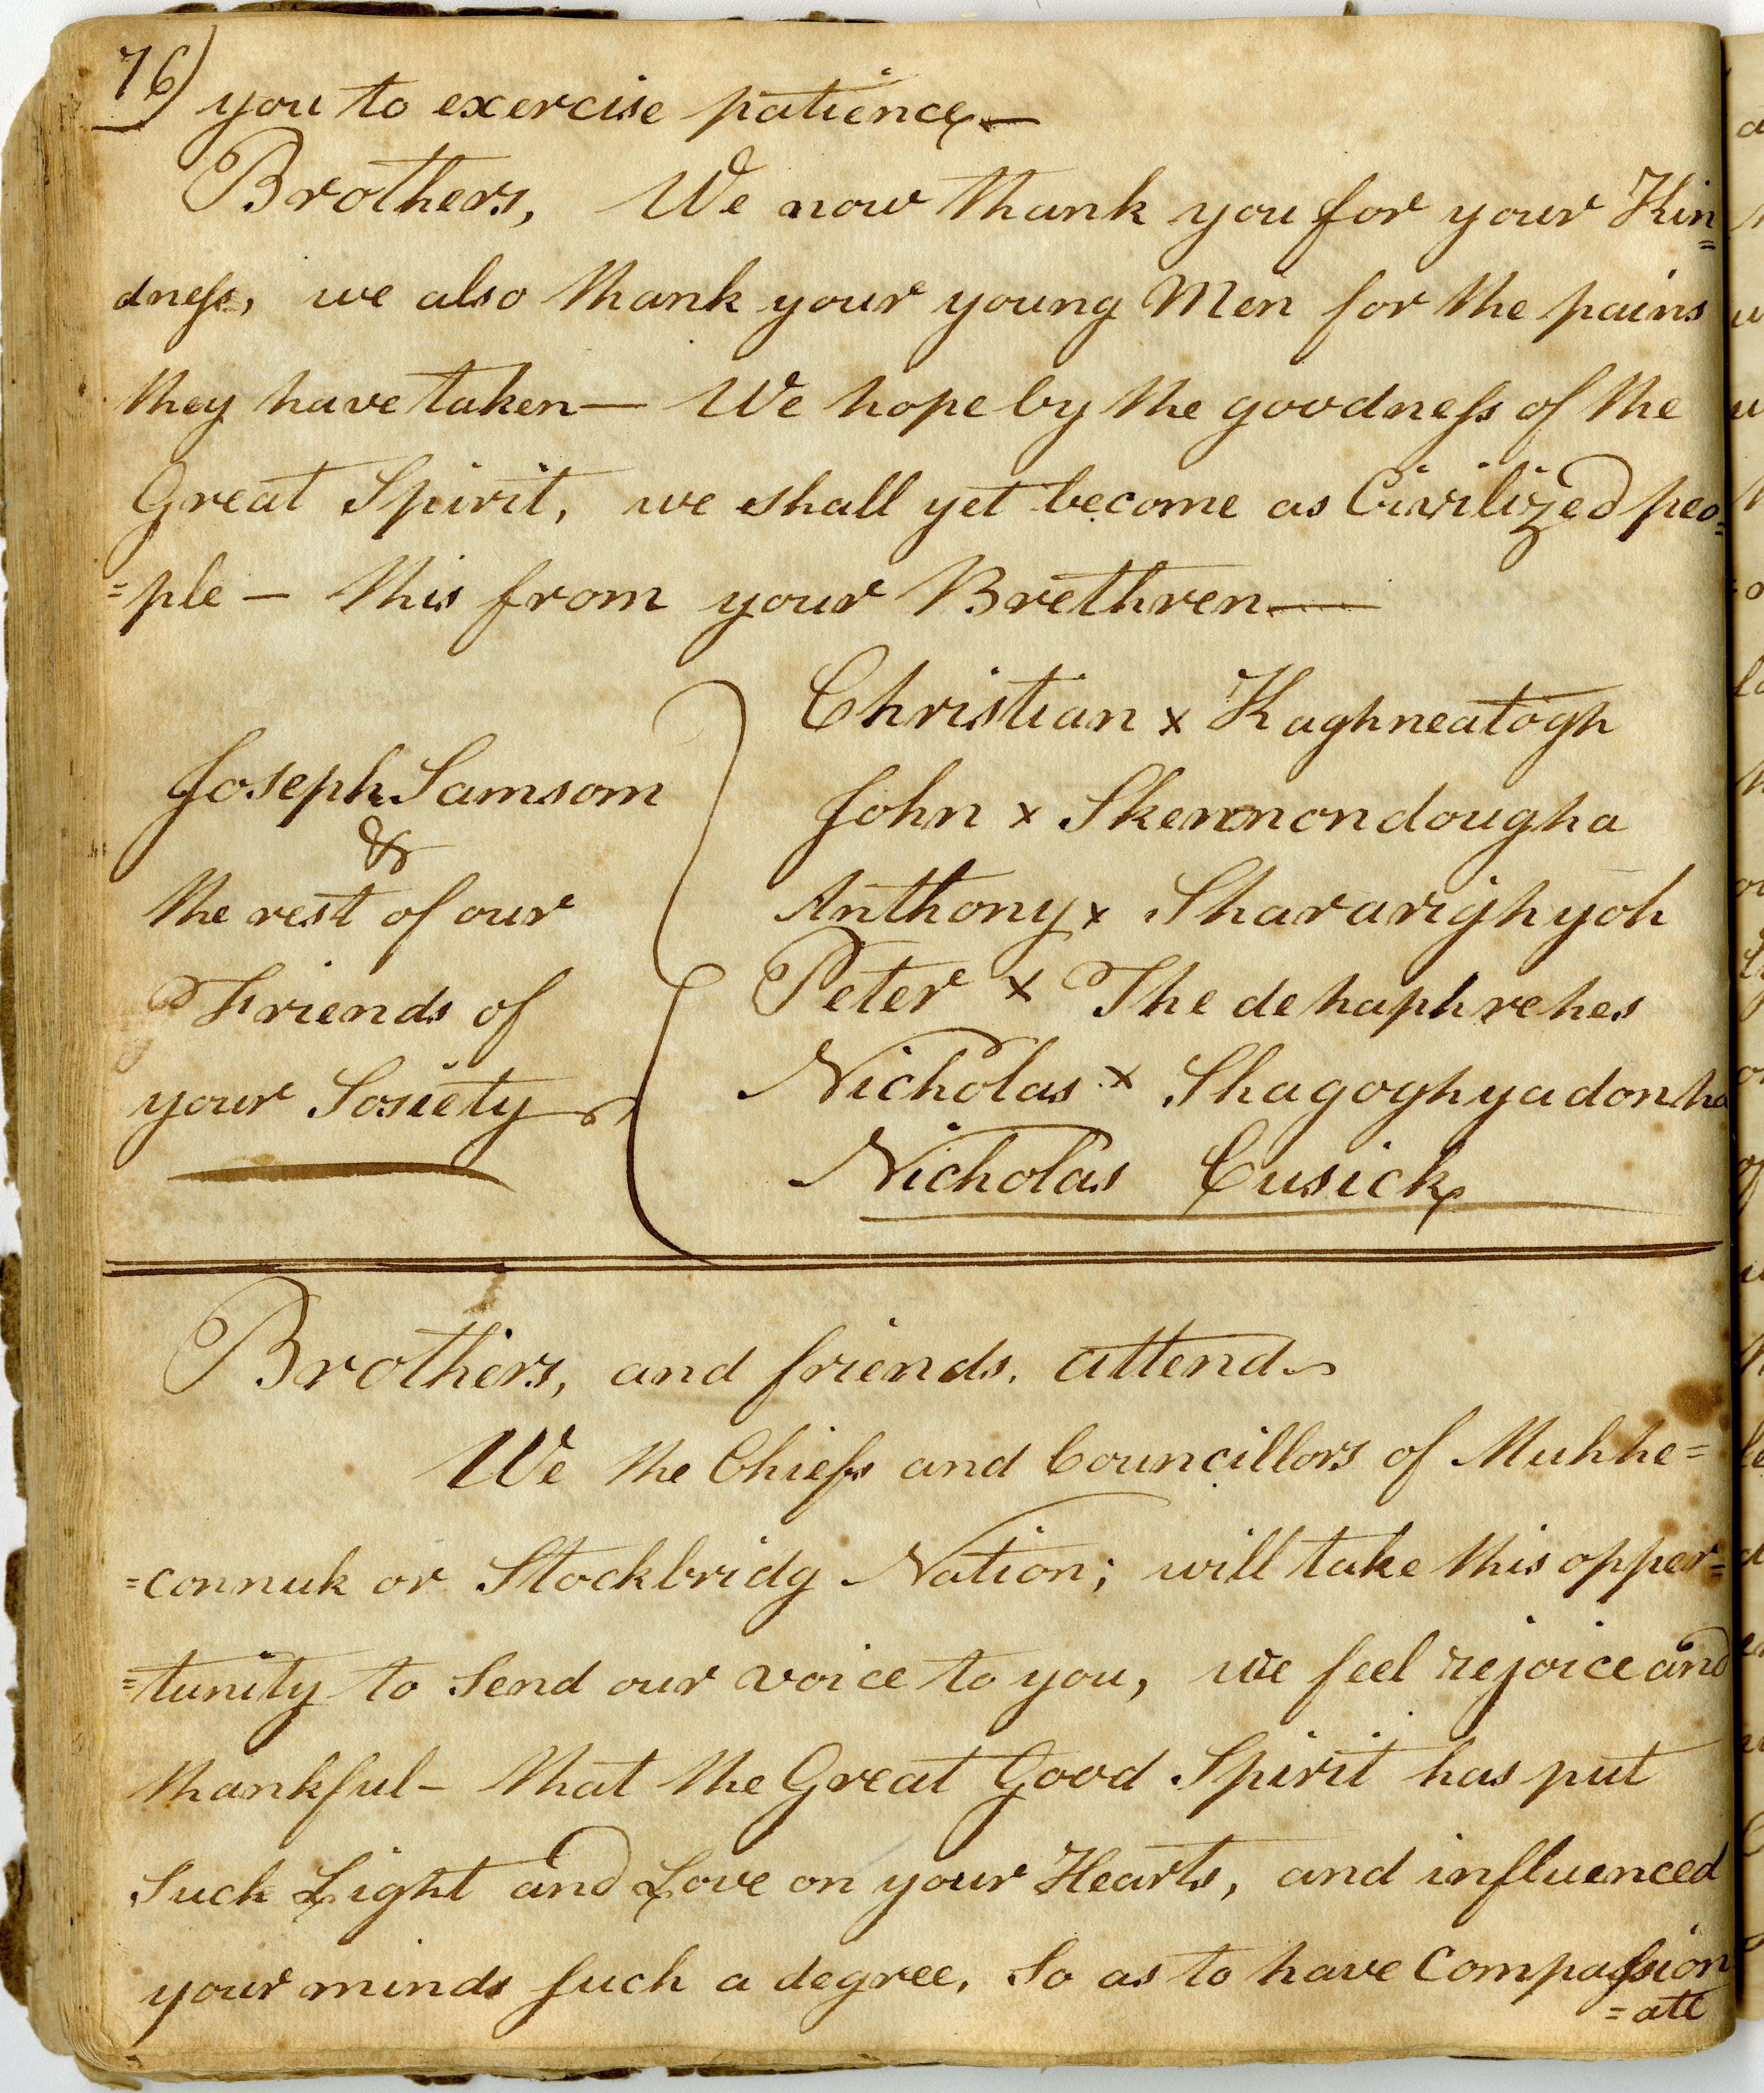 76)
you to exercise patience—
Brothers, We now thank you for your Kin=
dness, we also thank your young Men for the pains
they have taken— We hope by the goodness of the
Great Spirit, we shall yet become as Civilized peo=
=ple — this from your Brethren—
Joseph Samsom
&
the rest of our
Friends of
your Sosiety
Christian x Kaghneatogh
John x Skennondougha
Anthony x Shararighyoh
Peter x The de haphrehes
Nicholas x Shagoghyadonha
Nicholas Cusick
Brothers, and friends, attend
We the Chiefs and Councillors of Muhhe=
=connuk or Stockbridg Nation; will take this opper=
=tunity to Send our voice to you, we feel rejoice and
thankful— that the Great Good Spirit has put
Such Light and Love on your Hearts, and influenced
your minds such a degree, So as to have Compassion
=ate